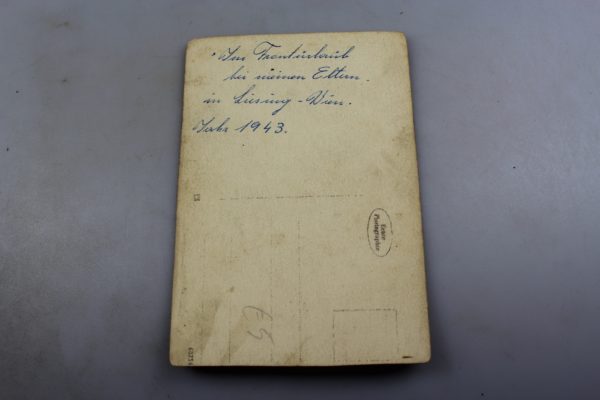 Im Fronturlaub
bei meinen Eltern.
in Liesing - Wien.
Jahr 1943.
Echte
Photographie
E5